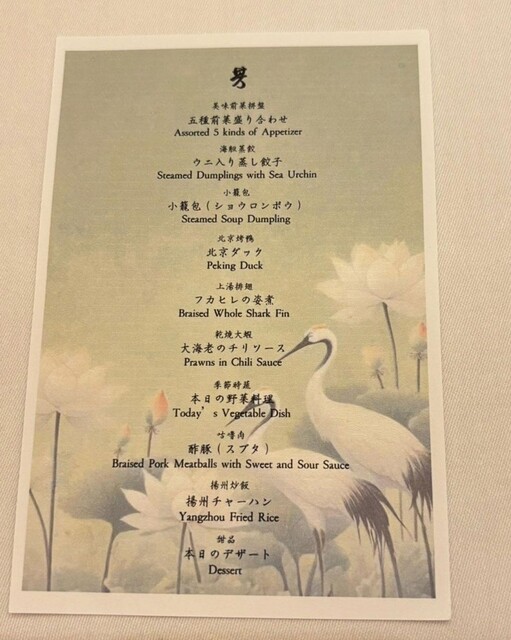 美味前菜拼盤
五種前菜盛り合わせ
Assorted 5 kinds of Appetizer
海胆蒸餃
ウニ入り蒸し餃子
Steamed Dumplings with Sea Urchin
小籠包
小籠包(ショウロンポウ)
Steamed Soup Dumpling
北京烤鴨
北京ダック
Peking Duck
上湯排翅
フカヒレの姿煮
Braised Whole Shark Fin
乾焼大蝦
大海老のチリソース
Prawns in Chili Sauce
季節時蔬
本日の野菜料理
Today's Vegetable Dish
咕嚕肉
酢豚(スブタ)
Braised Pork Meatballs with Sweet and Sour Sauce
揚州炒飯
揚州チャーハン
Yangzhou Fried Rice
甜品
本日のデザート
Dessert